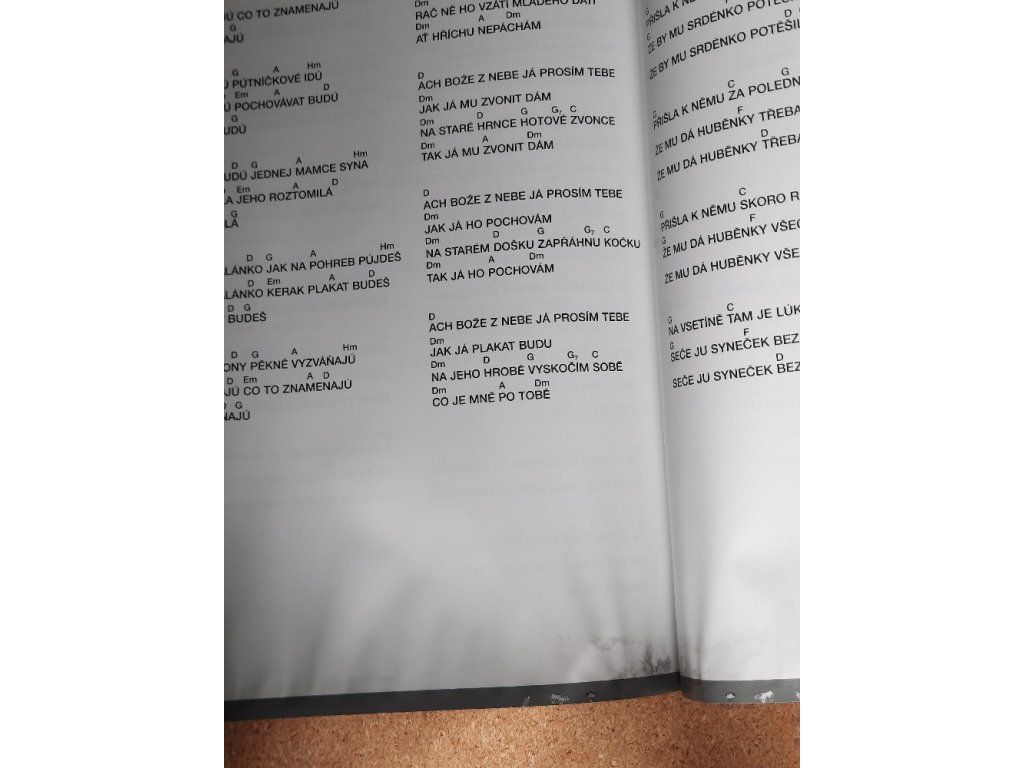 Ú CO TO ZNAMENAJÚ
G
AJÚ
G A Hm
Ú PÚTNÍČKOVÉ IDÚ
Em A D
Ú POCHOVÁVAT BUDÚ
G
UDÚ
D G A Hm
UDÚ JEDNEJ MAMCE SYNA
Em A D
A JEHO ROZTOMILÁ
G
LÁ
D G A Hm
LÁNKO JAK NA POHREB PÚJDEŠ
D Em A D
LÁNKO KERAK PLAKAT BUDEŠ
D G
BUDEŠ
D G A Hm
ONY PĚKNÉ VYZVÁŇAJÚ
D Em A D
AJÚ CO TO ZNAMENAJÚ
D G
NAJÚ
RAČ NĚ HO VZÁTI MLADÉHO DÁTI
Dm A Dm
AŤ HŘÍCHU NEPÁCHÁM
D
ACH BOŽE Z NEBE JÁ PROSÍM TEBE
Dm
JAK JÁ MU ZVONIT DÁM
Dm D G G7 C
NA STARÉ HRNCE HOTOVÉ ZVONCE
Dm A Dm
TAK JÁ MU ZVONIT DÁM
D
ACH BOŽE Z NEBE JÁ PROSÍM TEBE
Dm
JAK JÁ HO POCHOVÁM
Dm D G G7 C
NA STARÉM DOŠKU ZAPŘÁHNU KOČKU
Dm A Dm
TAK JÁ HO POCHOVÁM
D
ACH BOŽE Z NEBE JÁ PROSÍM TEBE
Dm
JAK JÁ PLAKAT BUDU
Dm D G G7 C
NA JEHO HROBĚ VYSKOČÍM SOBĚ
Dm A Dm
CO JE MNĚ PO TOBĚ
G
PŘIŠLA K
G
ŽE BY MU SRDÉNKO POTĚŠIL
D
ŽE BY MU SRDÉNKO POTĚŠIL
G C G
PŘIŠLA K NĚMU ZA POLEDN
G F
ŽE MU DÁ HUBĚNKY TŘEBA
D
ŽE MU DÁ HUBĚNKY TŘEBA
G C
PŘIŠLA K NĚMU SKORO R
G F
ŽE MU DÁ HUBĚNKY VŠEC
ŽE MU DÁ HUBĚNKY VŠE
G C
NA VSETÍNĚ TAM JE LÚK
G F
SEČE JU SYNEČEK BEZ
D
SEČE JU SYNEČEK BEZ